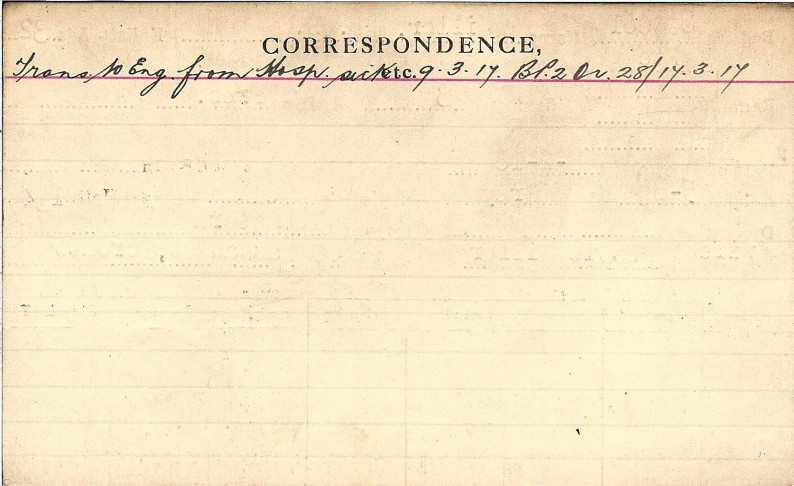 CORRESPONDENCE,
Trans. to Eng. from Hosp. sick etc. 9.3.17. B1.2 Or. 28/17.3.17